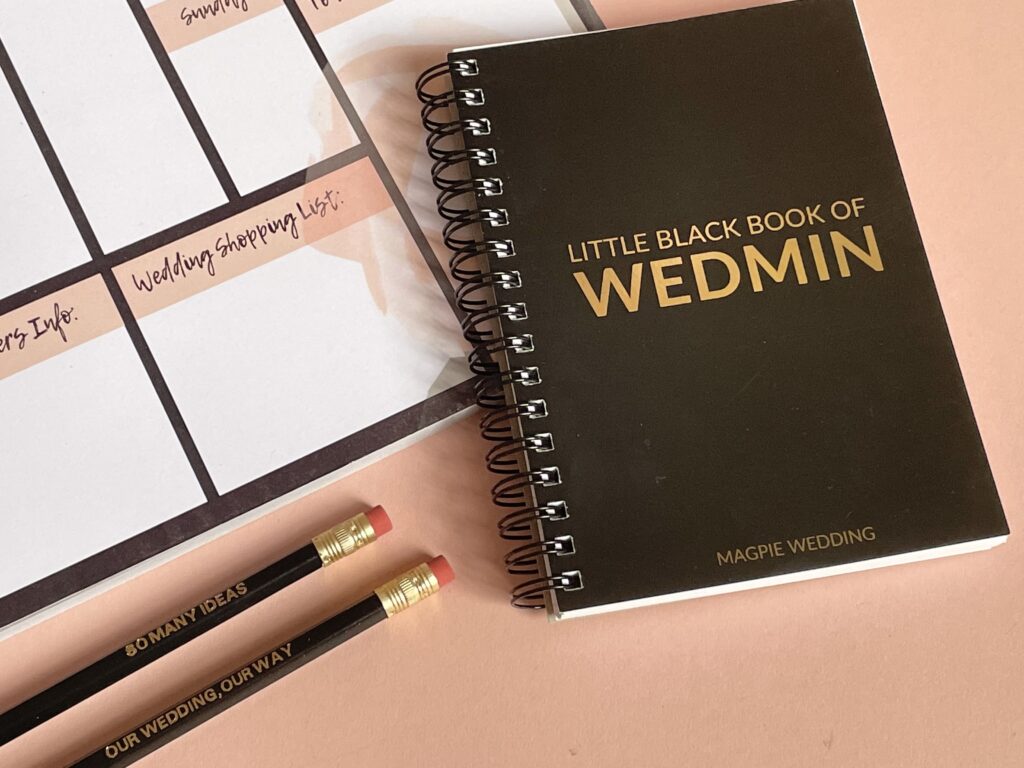 Sunday
Wedding Shopping List:
Info:
LITTLE BLACK BOOK OF
WEDMIN
MAGPIE WEDDING
SO MANY IDEAS
OUR WEDDING, OUR WAY